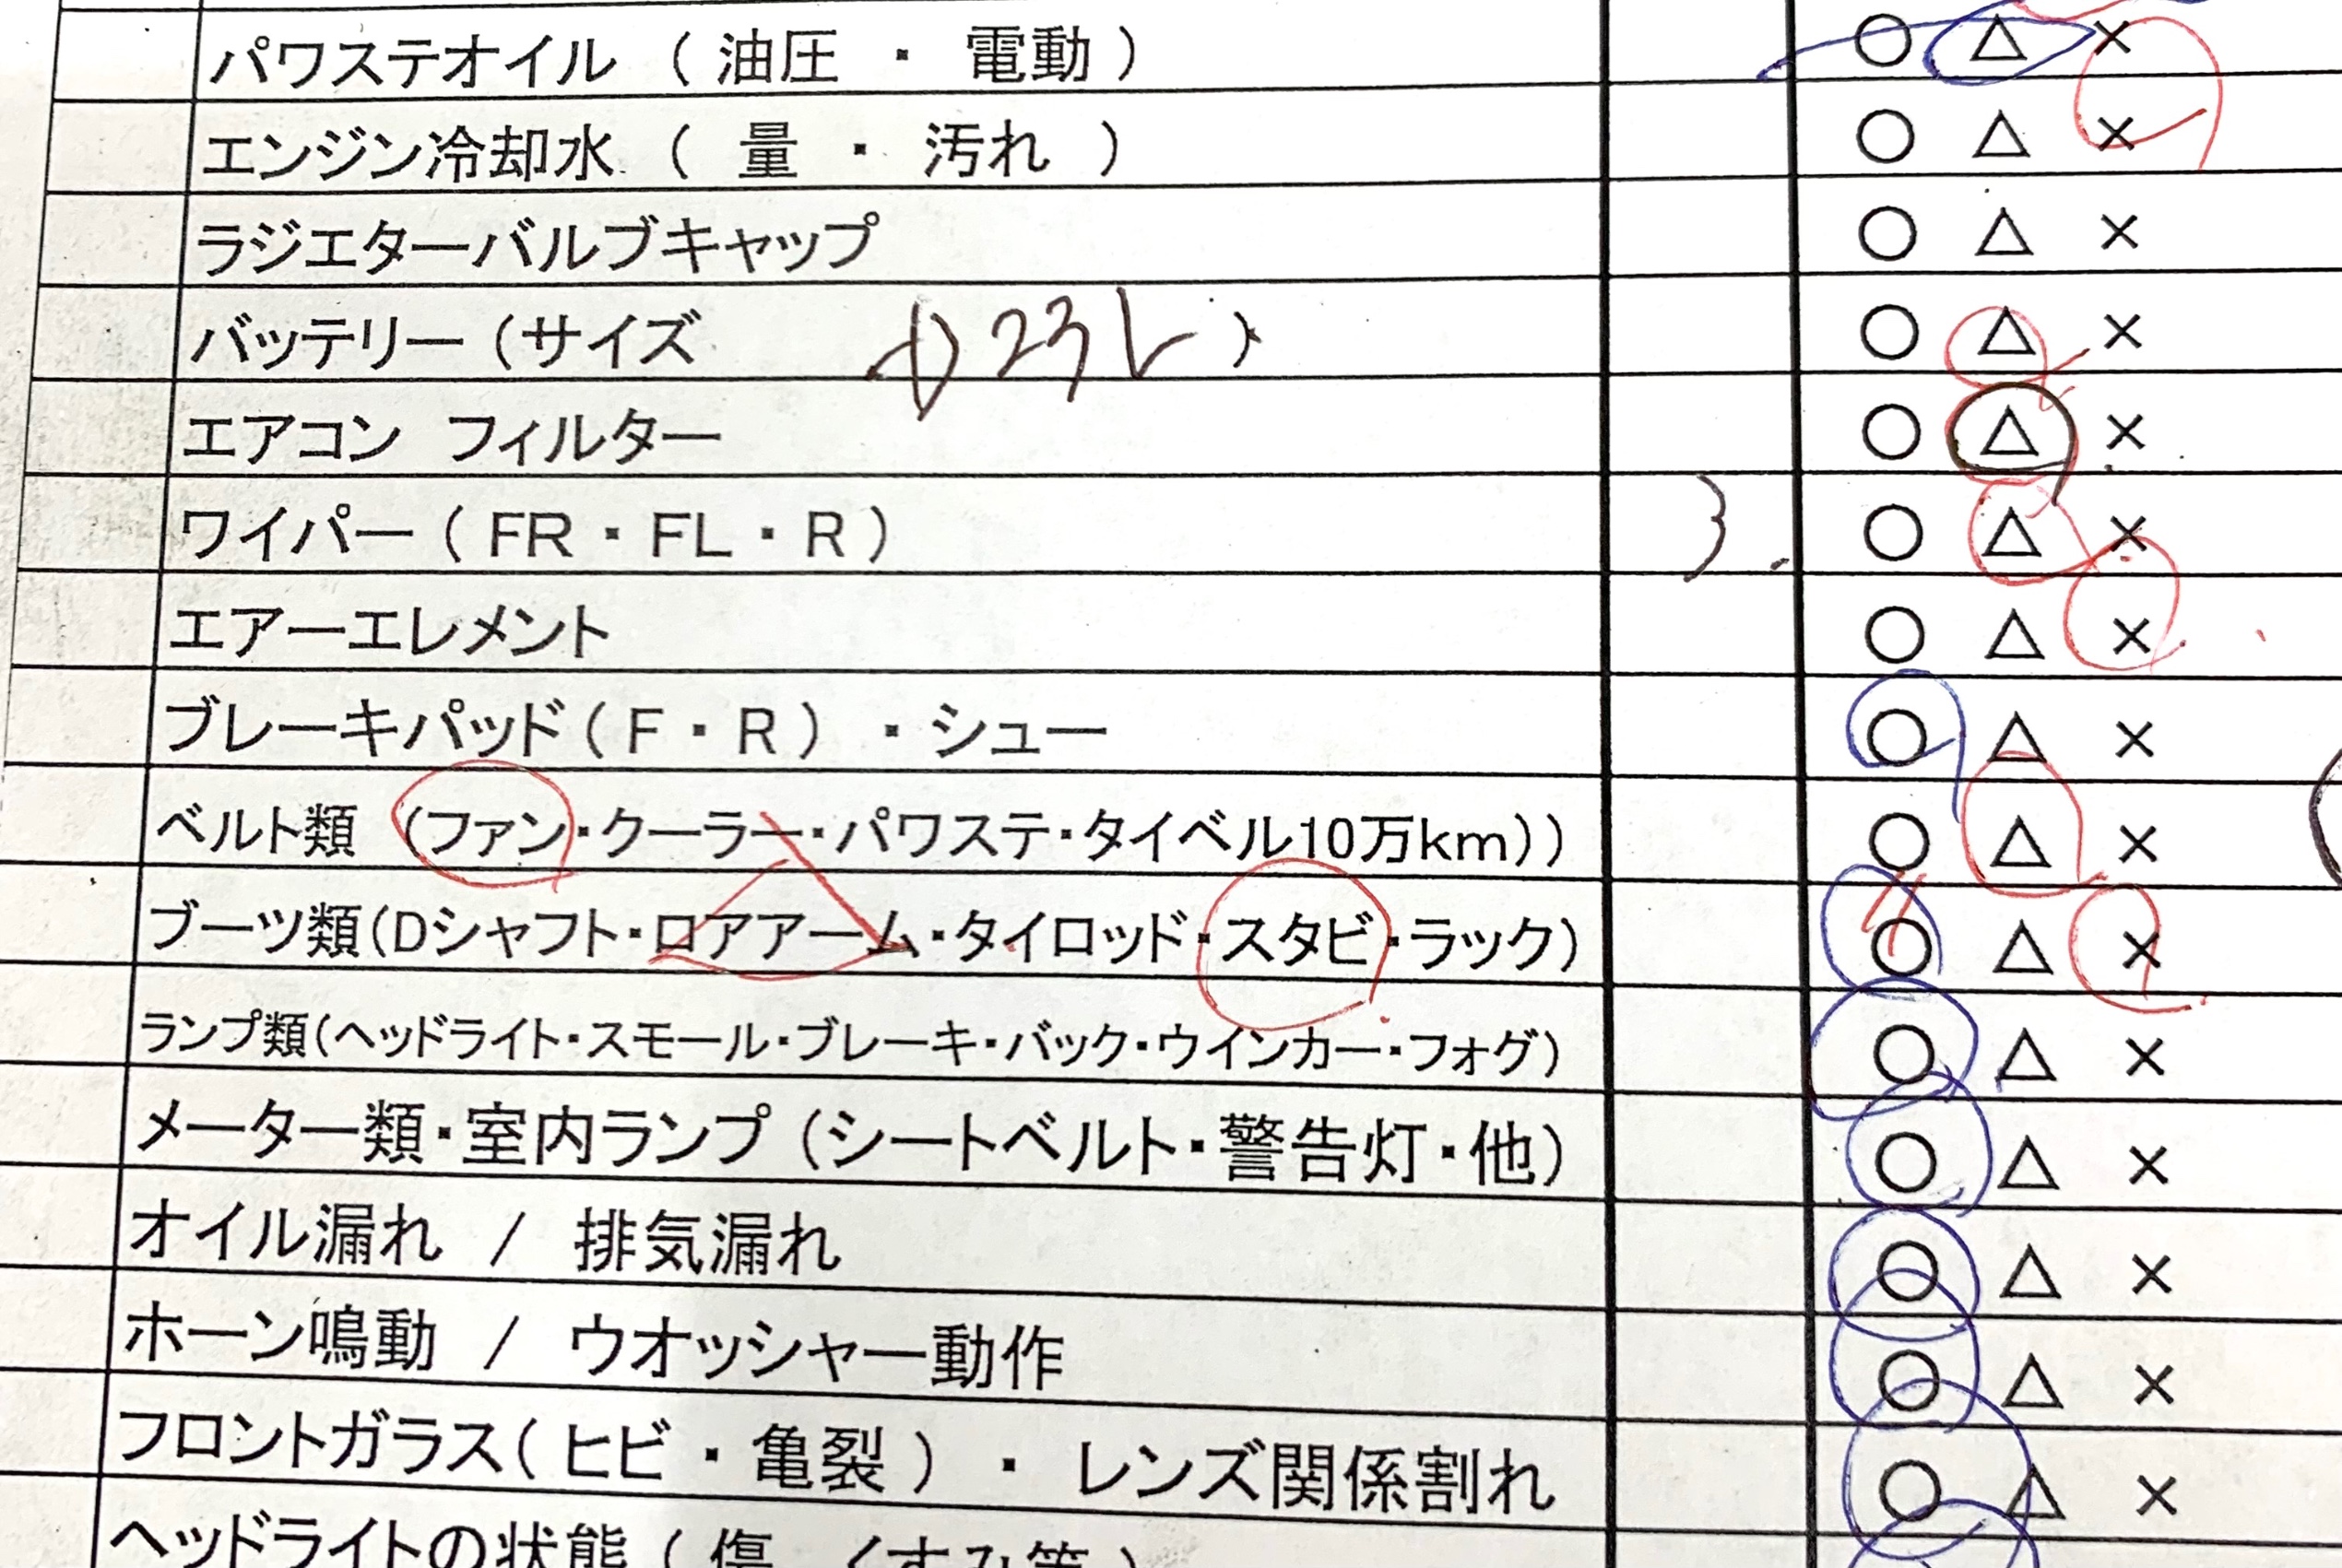 パワステオイル ( 油圧 ・ 電動 ) ○ △ ×
エンジン冷却水 ( 量 ・ 汚れ ) ○ △ ×
ラジエターバルブキャップ ○ △ ×
バッテリー (サイズ D23L ) ○ △ ×
エアコン フィルター ○ △ ×
ワイパー ( FR・FL・R ) 3 ○ △ ×
エアーエレメント ○ △ ×
ブレーキパッド( F・R ) ・シュー ○ △ ×
ベルト類 (ファン・クーラー・パワステ・タイベル10万km)) ○ △ ×
ブーツ類(Dシャフト・ロアアーム・タイロッド・スタビ・ラック) ○ △ ×
ランプ類(ヘッドライト・スモール・ブレーキ・バック・ウインカー・フォグ) ○ △ ×
メーター類・室内ランプ (シートベルト・警告灯・他) ○ △ ×
オイル漏れ / 排気漏れ ○ △ ×
ホーン鳴動 / ウオッシャー動作 ○ △ ×
フロントガラス( ヒビ・亀裂 ) ・ レンズ関係割れ ○ △ ×
ヘッドライトの状態 ( 傷 くすみ等 )